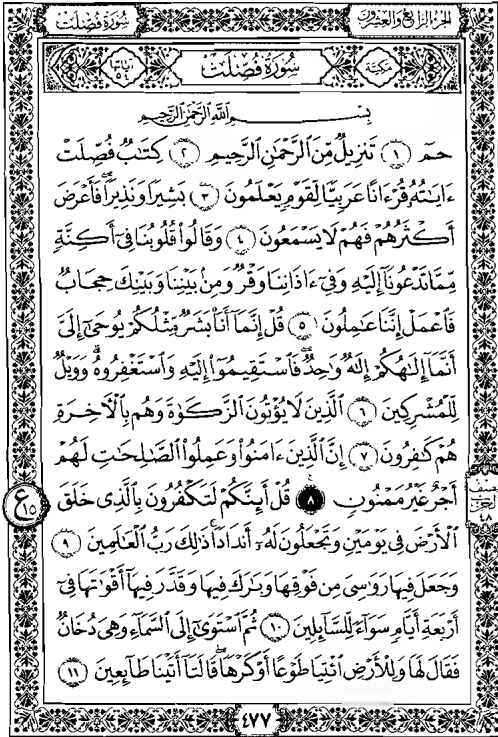 الجزء الرابع والعشرون
سورة فصلت
مكية
سورة فصلت
آياتها ٥٤
بِسْمِ ٱللَّهِ ٱلرَّحْمَٰنِ ٱلرَّحِيمِ
حمٓ ١ تَنزِيلٌ مِّنَ ٱلرَّحْمَٰنِ ٱلرَّحِيمِ ٢ كِتَٰبٌ فُصِّلَتْ
ءَايَٰتُهُۥ قُرْءَانًا عَرَبِيًّا لِّقَوْمٍ يَعْلَمُونَ ٣ بَشِيرًا وَنَذِيرًا فَأَعْرَضَ
أَكْثَرُهُمْ فَهُمْ لَا يَسْمَعُونَ ٤ وَقَالُوا۟ قُلُوبُنَا فِىٓ أَكِنَّةٍ
مِّمَّا تَدْعُونَآ إِلَيْهِ وَفِىٓ ءَاذَانِنَا وَقْرٌ وَمِنۢ بَيْنِنَا وَبَيْنِكَ حِجَابٌ
فَٱعْمَلْ إِنَّنَا عَٰمِلُونَ ٥ قُلْ إِنَّمَآ أَنَا۠ بَشَرٌ مِّثْلُكُمْ يُوحَىٰٓ إِلَىَّ
أَنَّمَآ إِلَٰهُكُمْ إِلَٰهٌ وَٰحِدٌ فَٱسْتَقِيمُوٓا۟ إِلَيْهِ وَٱسْتَغْفِرُوهُ ۗ وَوَيْلٌ
لِّلْمُشْرِكِينَ ٦ ٱلَّذِينَ لَا يُؤْتُونَ ٱلزَّكَوٰةَ وَهُم بِٱلْءَاخِرَةِ
هُمْ كَٰفِرُونَ ٧ إِنَّ ٱلَّذِينَ ءَامَنُوا۟ وَعَمِلُوا۟ ٱلصَّٰلِحَٰتِ لَهُمْ
أَجْرٌ غَيْرُ مَمْنُونٍ ٨ قُلْ أَئِنَّكُمْ لَتَكْفُرُونَ بِٱلَّذِى خَلَقَ
ٱلْأَرْضَ فِى يَوْمَيْنِ وَتَجْعَلُونَ لَهُۥٓ أَندَادًا ۚ ذَٰلِكَ رَبُّ ٱلْعَٰلَمِينَ ٩
وَجَعَلَ فِيهَا رَوَٰسِىَ مِن فَوْقِهَا وَبَٰرَكَ فِيهَا وَقَدَّرَ فِيهَآ أَقْوَٰتَهَا فِىٓ
أَرْبَعَةِ أَيَّامٍ سَوَآءً لِّلسَّآئِلِينَ ١٠ ثُمَّ ٱسْتَوَىٰٓ إِلَى ٱلسَّمَآءِ وَهِىَ دُخَانٌ
فَقَالَ لَهَا وَلِلْأَرْضِ ٱئْتِيَا طَوْعًا أَوْ كَرْهًا قَالَتَآ أَتَيْنَا طَآئِعِينَ ١١
نصف
الحزب
٤٨
ع
١٥
٤٧٧